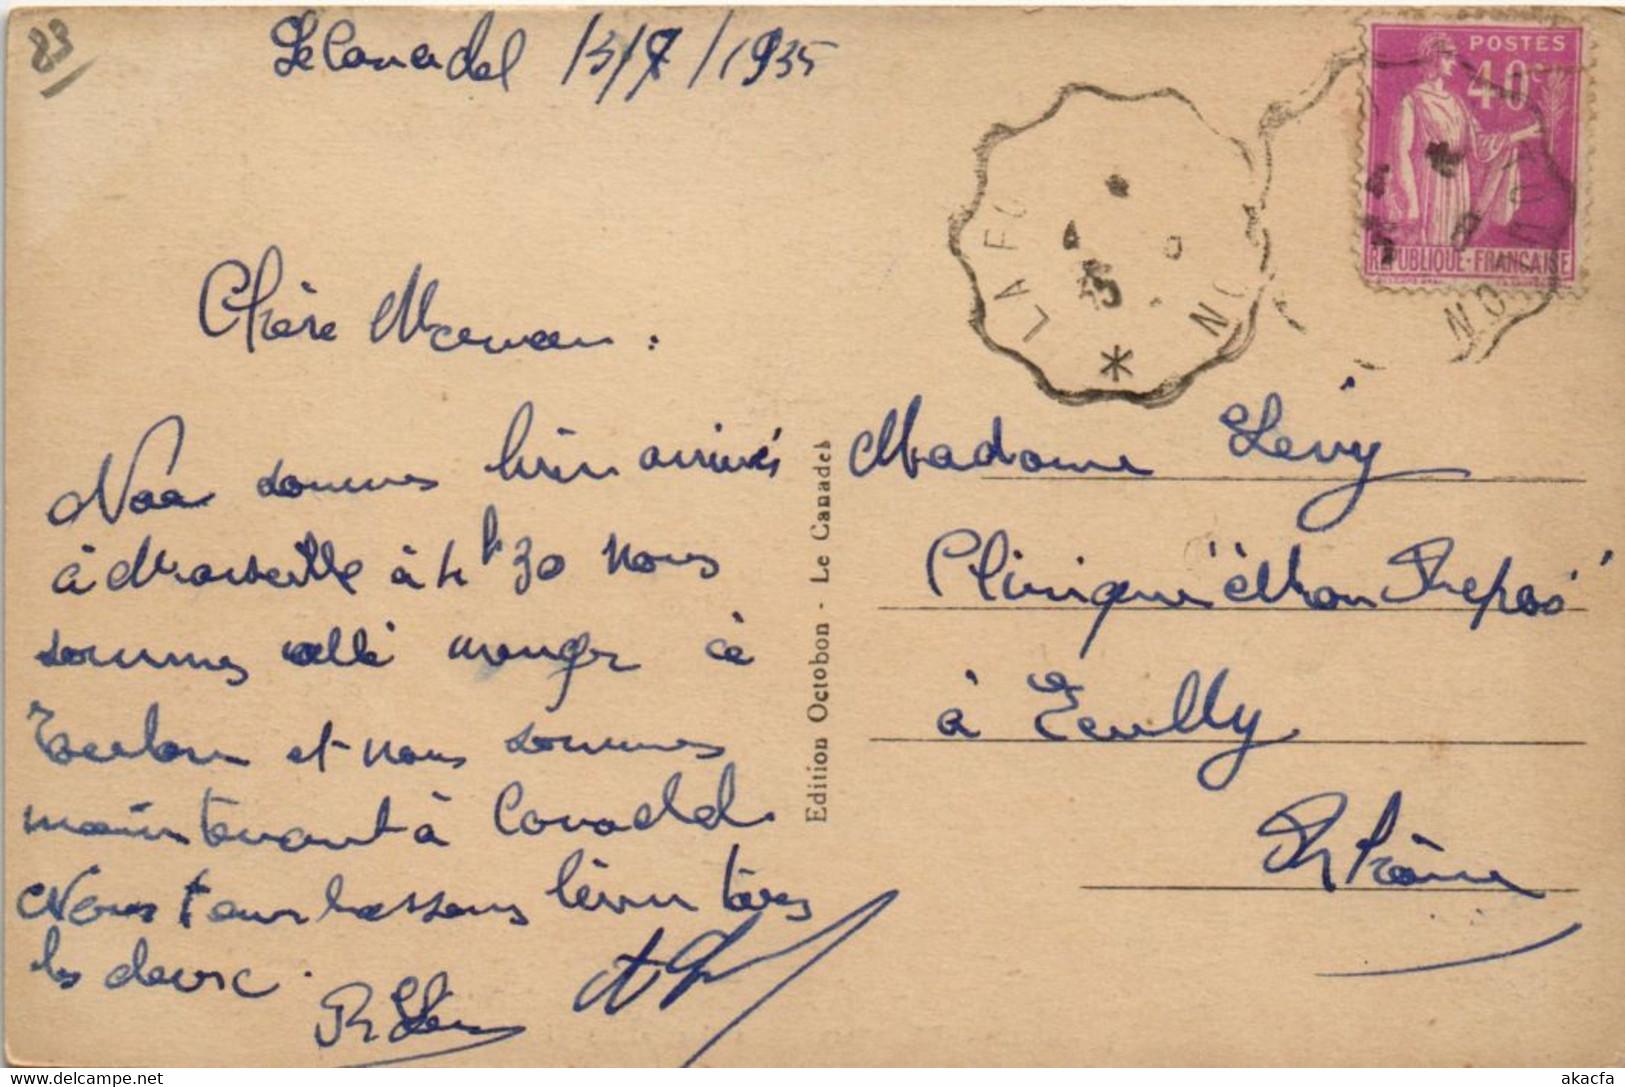 83
Le Canadel 15/7/1935
POSTES
40c
REPUBLIQUE · FRANCAISE
LAFO
35
NO
NO
Chère Maman :
Nous sommes bien arrivés
à Marseille à 4h30 nous
sommes allé manger à
Toulon et nous sommes
maintenant à Canadel.
Nous t'embrassons bien
les deux.
R Lévy
Edition Octobon - Le Canadel
Madame Lévy
Clinique "Mon Repos"
à Ecully
Rhône
akacfa